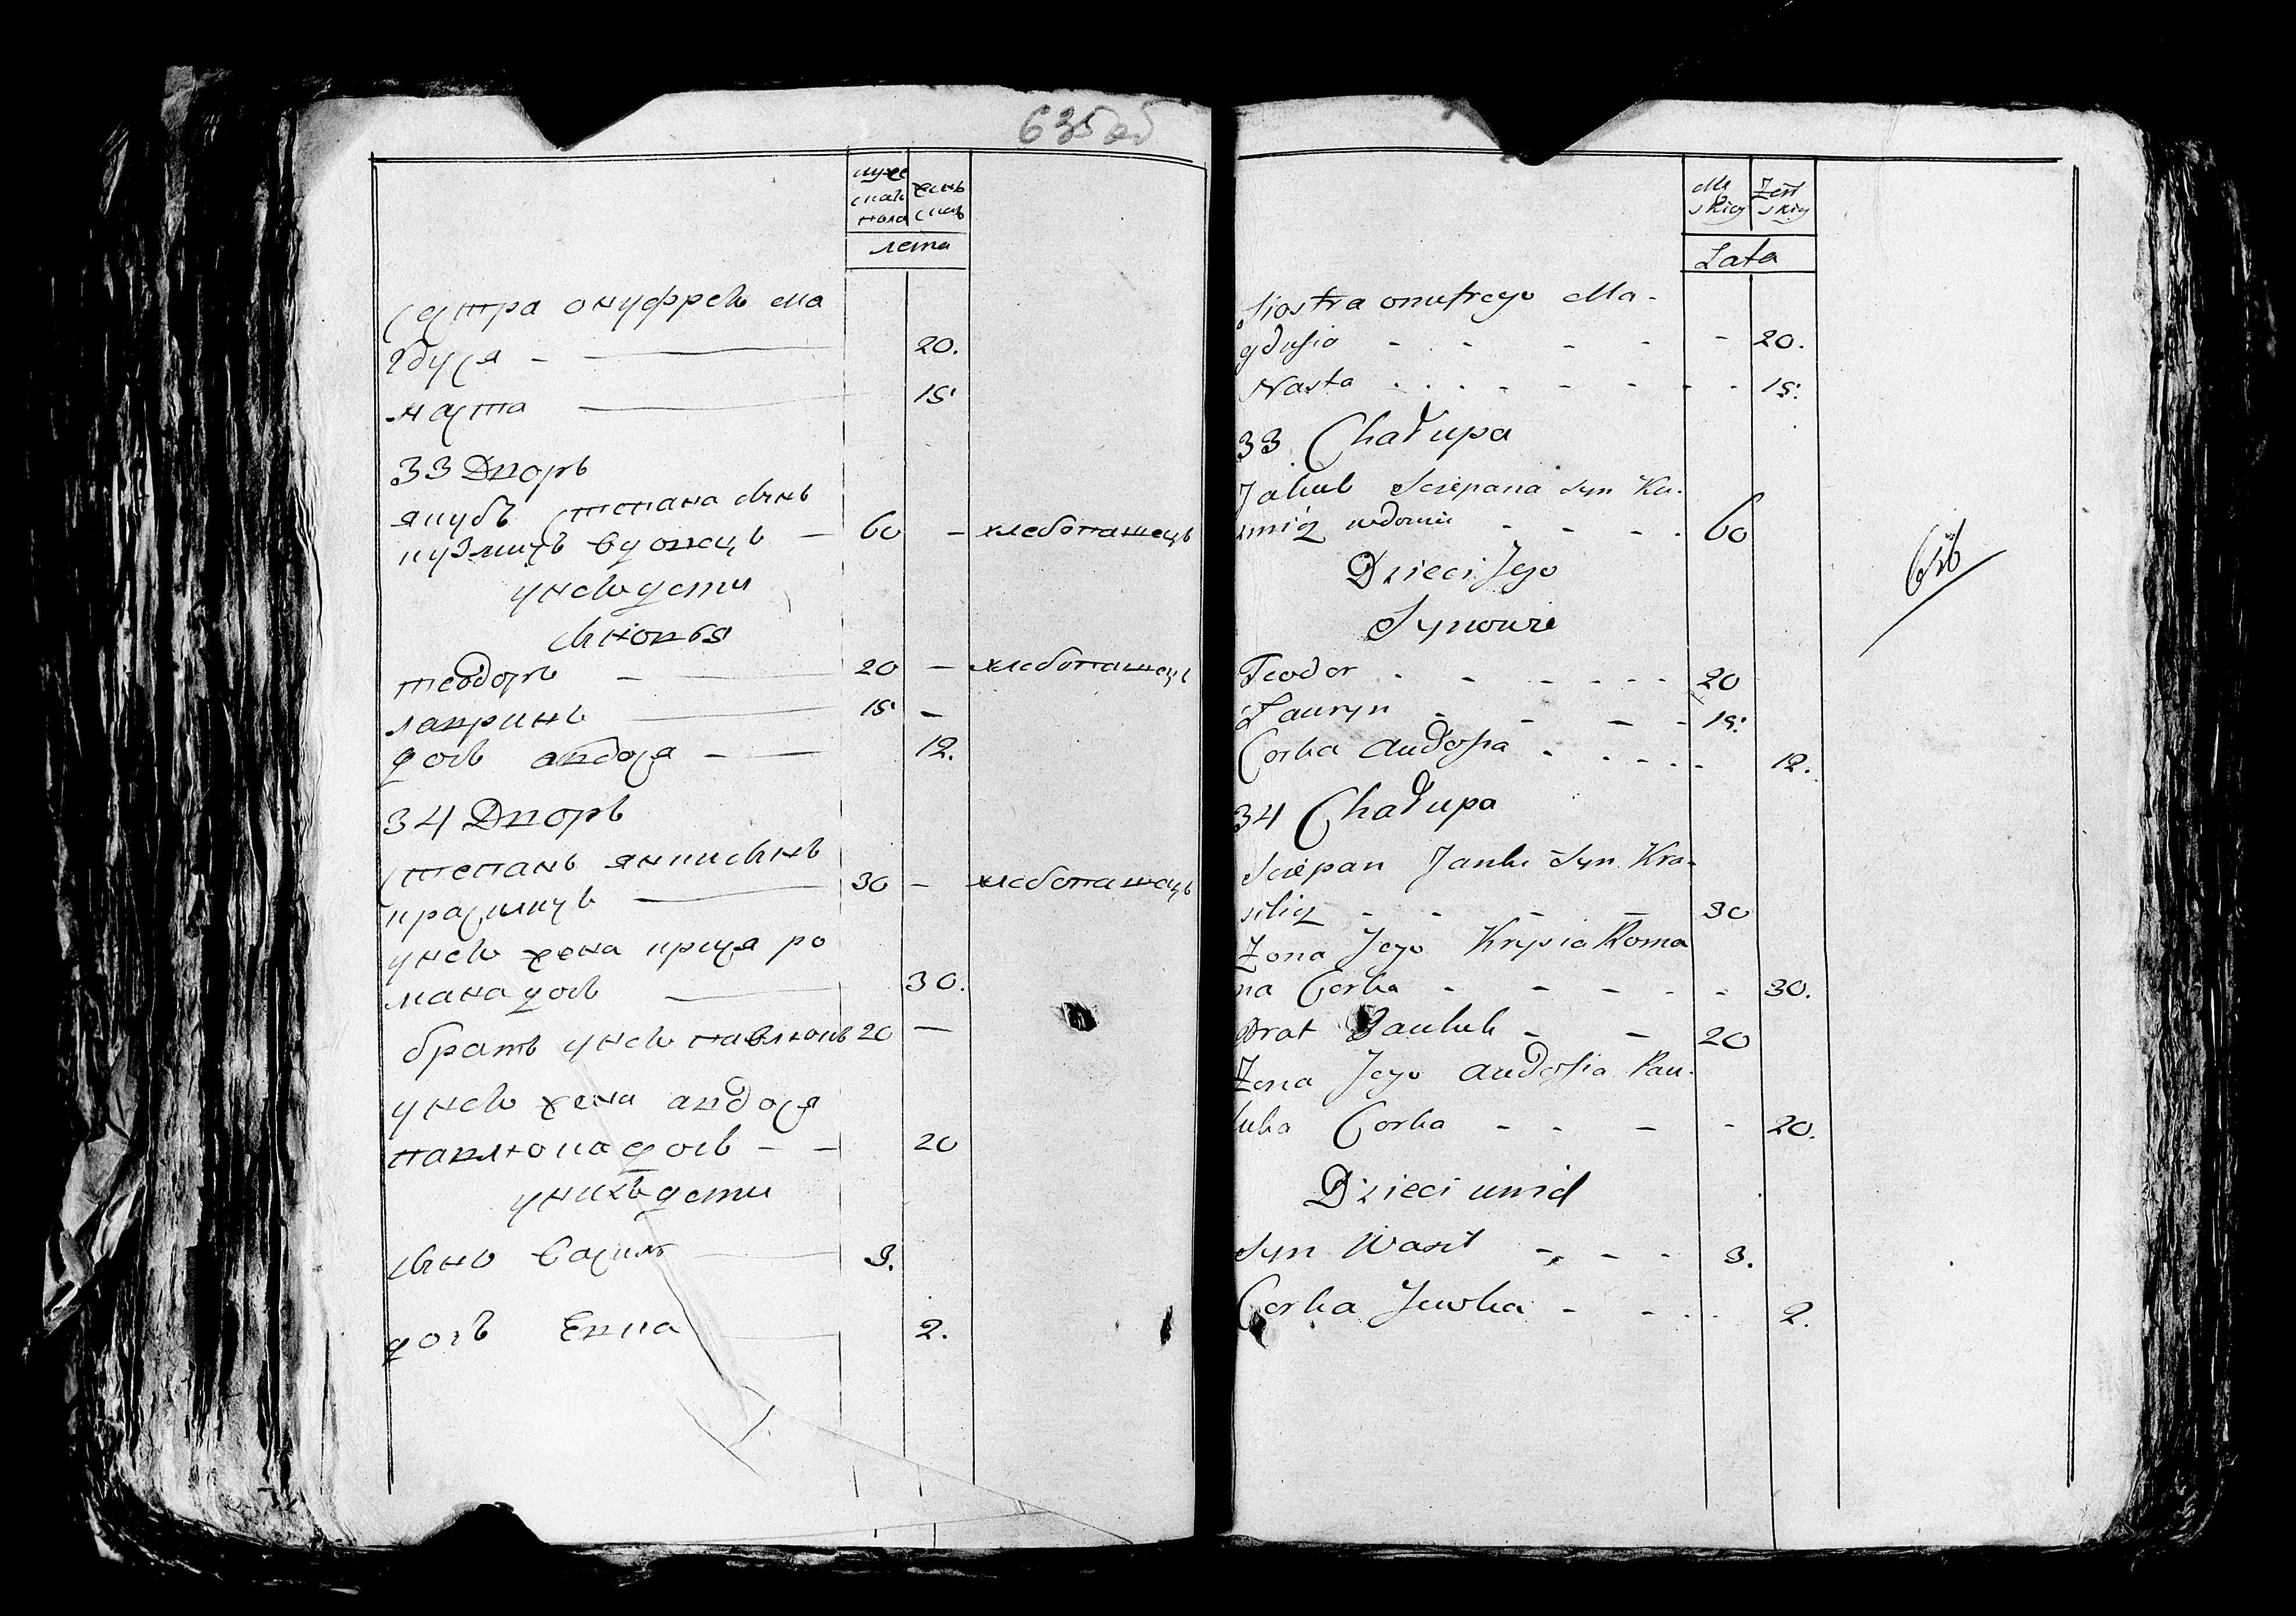 635 об
муже
скаго
пола
женъ
скаго
лета
сестра онуфрея ма
гдуся - 20.
наста 15.
33 Дворъ
якубъ степана сынъ
кузмичъ вдовецъ - 60 - хлебопашецъ
унего дети
сыновья
теодоръ - 20 - хлебопашецъ
лавринъ 15 -
дочь авдося - 12.
34 Дворъ
степанъ янки сынъ
красиличъ 30 - хлебопашецъ
унего жена крися ро
мана дочь 30.
братъ унего павлюкъ 20 -
унего жена авдося
павлюка дочь - - 20
унихъ дети
сынъ василь 3.
дочь Евка 2.
Mę
skiey
Żeń
skiey
Lata
Siostra onufrego Ma-
gdusia - - - - - 20.
Nasta - - - - - 15.
33 Chałupa
Jakub Sciepana Syn Ku-
zmicz wdowiec - - - 60
Dzieci Jego
Synowie
Teodor - - - - - 20
Lauryn - - - - 15.
Corka Audosia - - - - 12.
34 Chałupa
Sciepan Janki Syn Kra-
silicz - - - - 30
Żona Jego Krysia Roma
na Corka - - - - - 30.
Brat Pauluk - - 20
Żona Jego Audosia Pau-
luka Corka - - - - 20.
Dzieci unich
Syn Wasil - - - 3.
Corka Jewka - - - 2.